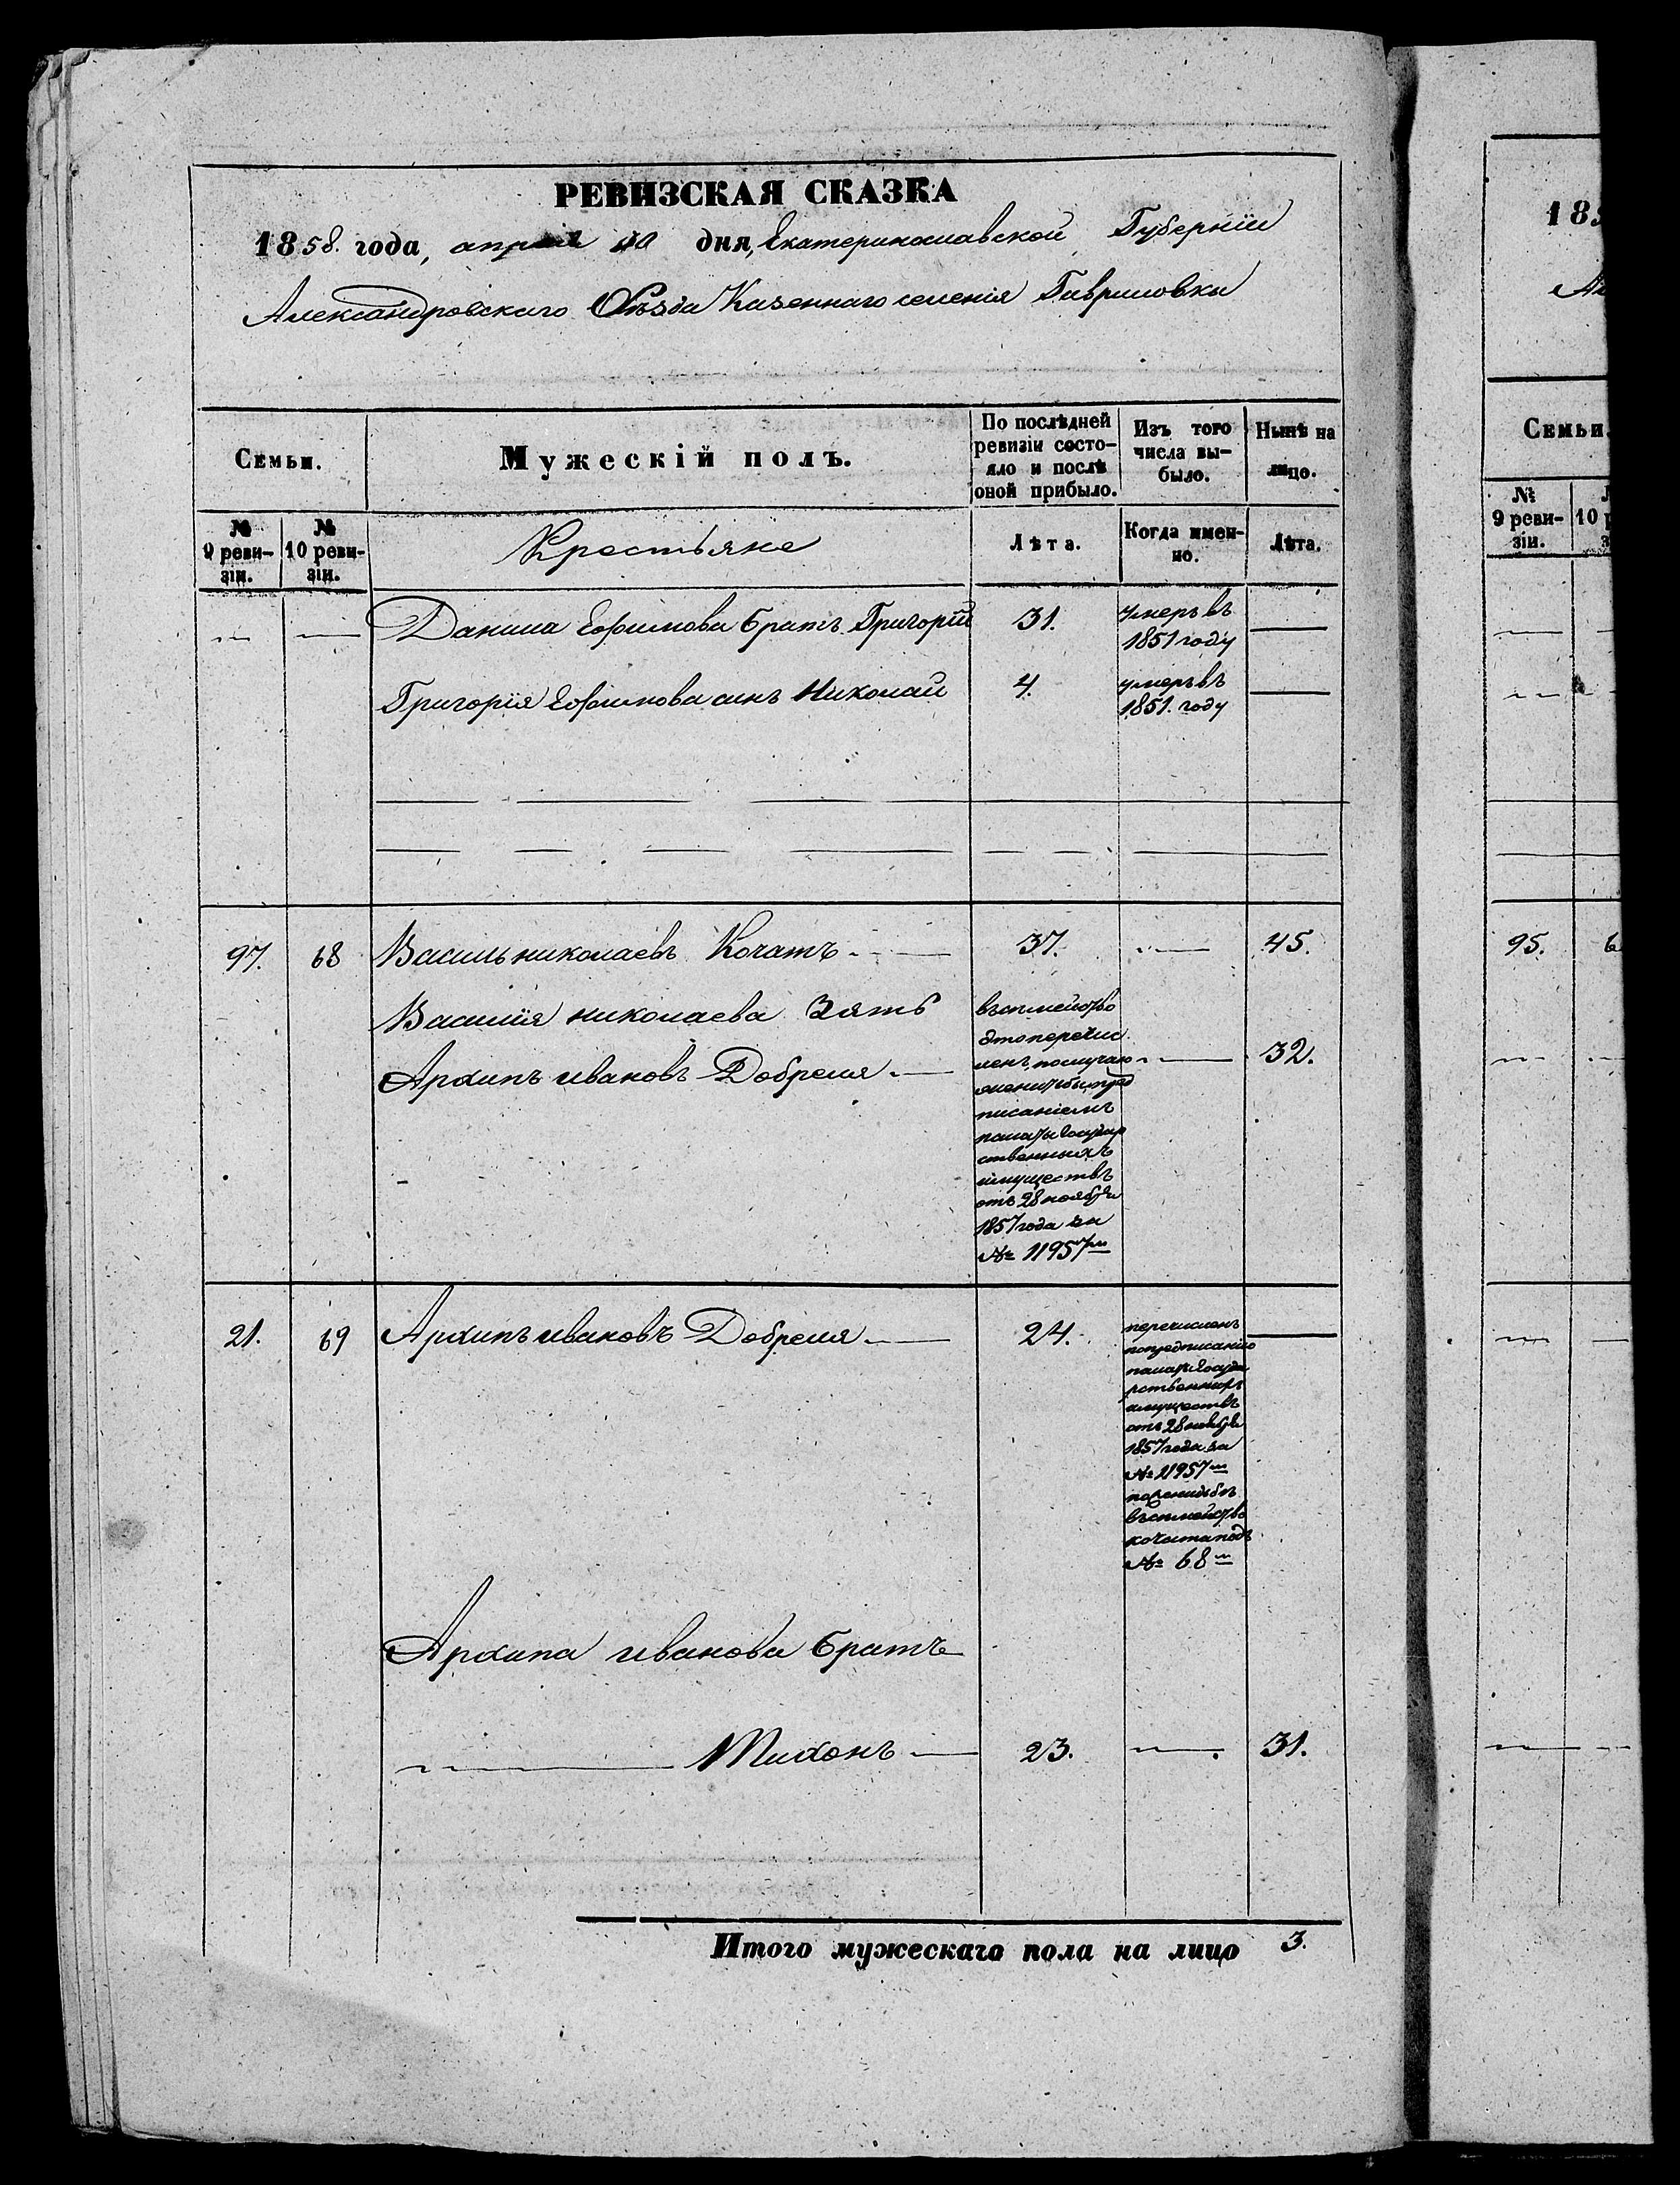 РЕВИЗСКАЯ СКАЗКА
1858. года, апреля дня, Екатеринославской Губерніи
Александровскаго Уѣзда Казеннаго селенія Гавриловки
Семьи.
Мужескій полъ.
По послѣдней ревизіи состо-
яло и послѣ
оной прибыло.
Изъ того
числа вы-
было.
Нынѣ на
лицо.
№ 9 реви-
зіи.
№ 10 реви-
зіи.
Крестьяне
Лѣта.
Когда имен-
но.
Лѣта.
Данила Ефимова братъ Григорій 31. умеръ въ
1851 году
Григорія Ефимова сынъ Николай 4. умеръ въ
1851. году
97. 68 Василь николаевъ Кочатъ 37. 45.
Василія николаева Зять
Архипъ ивановъ Добреля 32.
въсемейство
это перечис
ленъ послучаю
женитьбы пред
писаніемъ
палаты государ
ственныхъ
имуществъ
отъ 28 ноября
1857 года за
№ 11957м
21. 69 Архипъ ивановъ Добреля 24.
перечисленъ
попредписанію
палаты государ
ственныхъ
имуществъ
отъ 28 ноября
1857 года за
№ 11957м
поженидьбѣ
въсемейство
кочата подъ
№ 68м
Архипа иванова братъ
Тихонъ 23. 31.
Итого мужескаго пола на лицо 3.
185
Семьи.
№
9 реви-
зіи.
10
95. 6